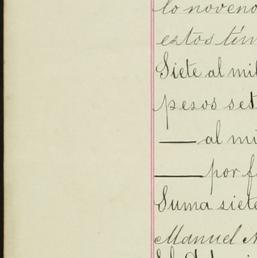 lo noveno
estos tér
Siete al mil
pesos set
— al mi
— por f
Suma siete
Manuel